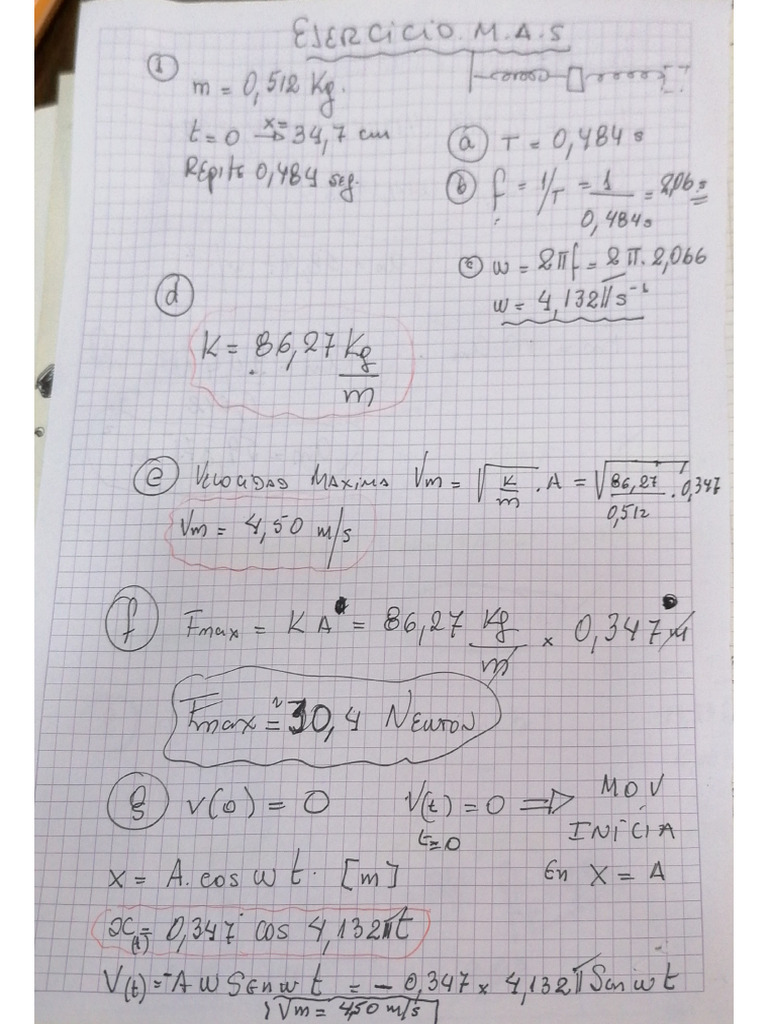 EJERCICIO M.A.S
1 m = 0,512 Kg.
t = 0 x=→ 34,7 cm
Repite 0,484 seg.
a T = 0,484 s
b f = 1/T = 1/0,484s = 2,06 s
c w = 2πf = 2π.2,066
w = 4,132π s⁻¹
d
K = 86,27 Kg/m
e VELOCIDAD MAXIMA Vm = √(K/m) . A = √(86,27/0,512) . 0,347
Vm = 4,50 m/s
f Fmax = K A = 86,27 Kg/m x 0,347 m
Fmax = 30,4 NEWTON
g v(0) = 0 V(t) = 0 ⇒ MOV
t=0 INICIA
x = A. cos w t. [m] En X = A
x(t) = 0,347 cos 4,132πt
V(t) = -A w SEN w t = - 0,347 x 4,132π Sen w t
Vm = 4,50 m/s